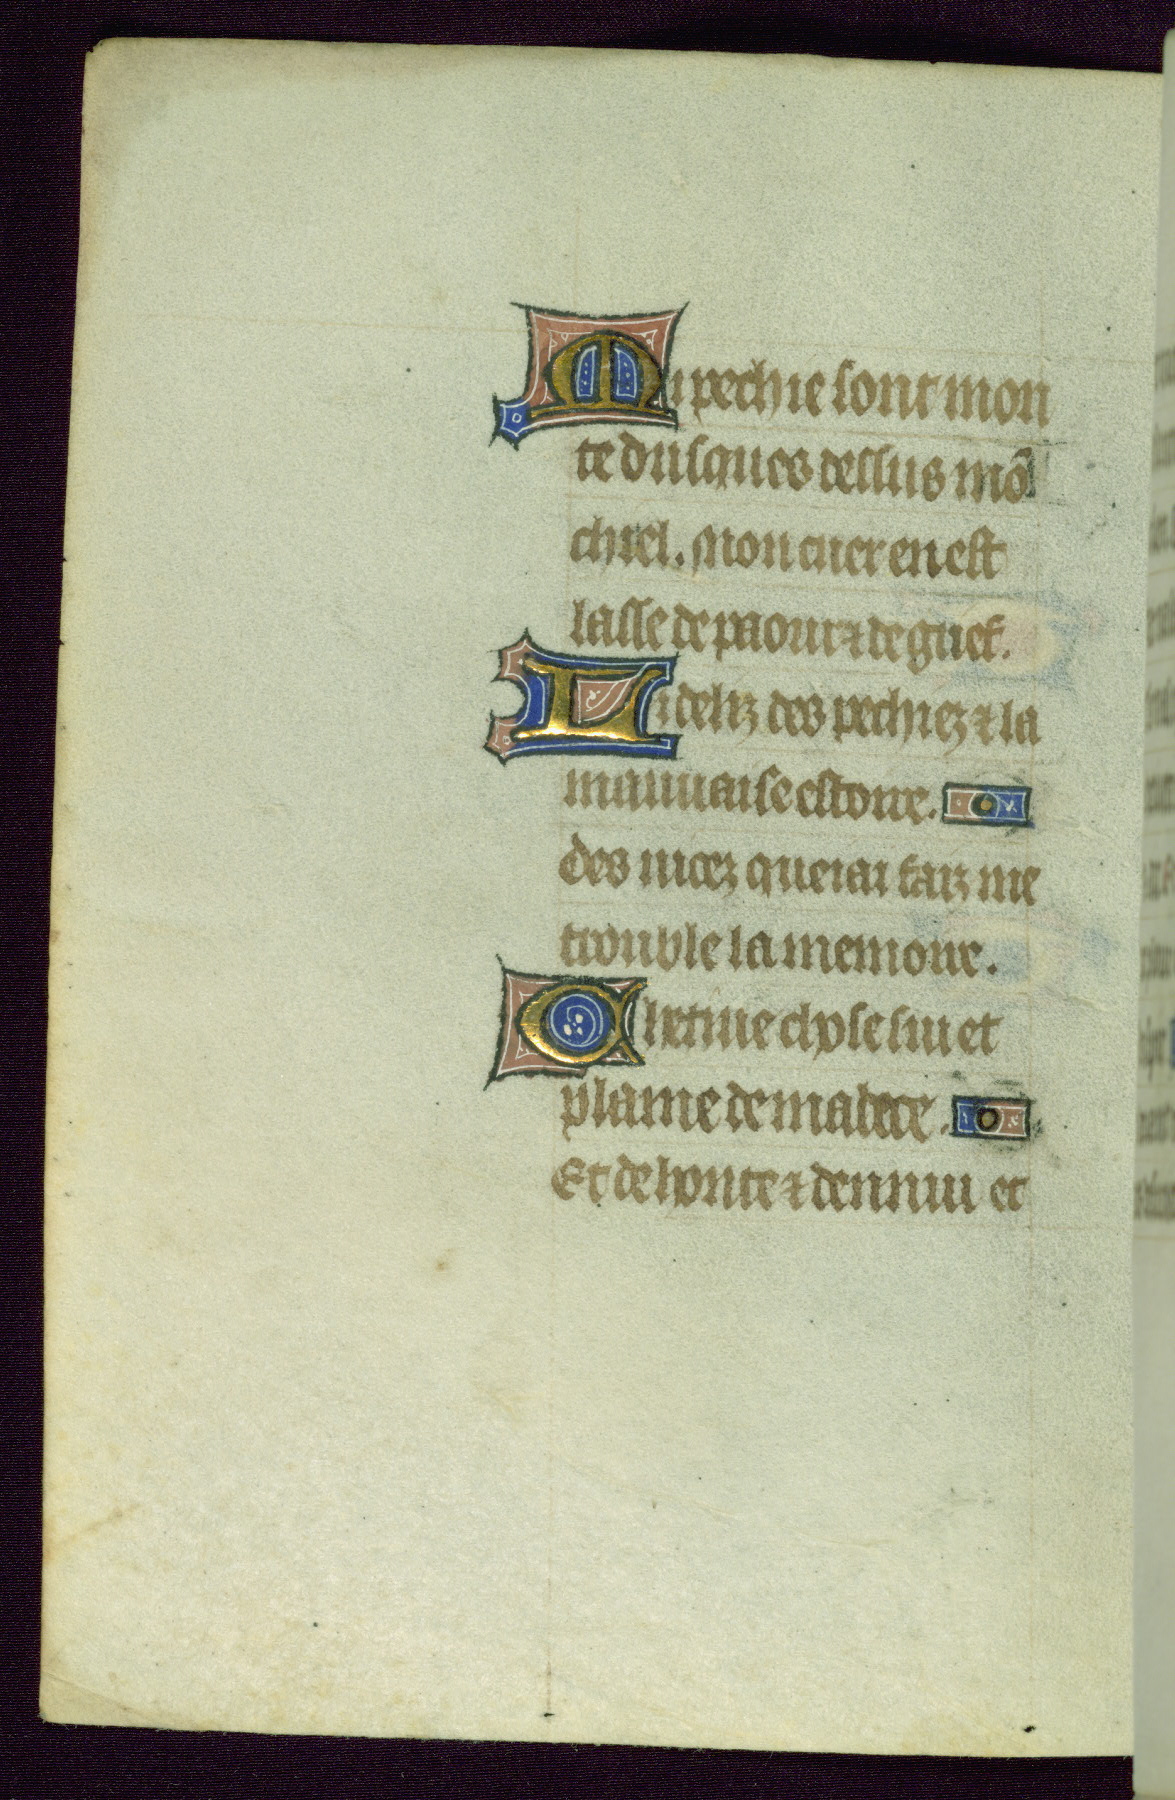 Mi pechie sont mon
te dusques dessus mō
chiel. Mon cuer en est
lasse de paour & de grief.
Li deliz des pechiez & la
mauuaise estoire.
des uicez que iai faiz me
trouble la memoire.
Chetiue chose sui et
plaine de
Et de honte & dennui et